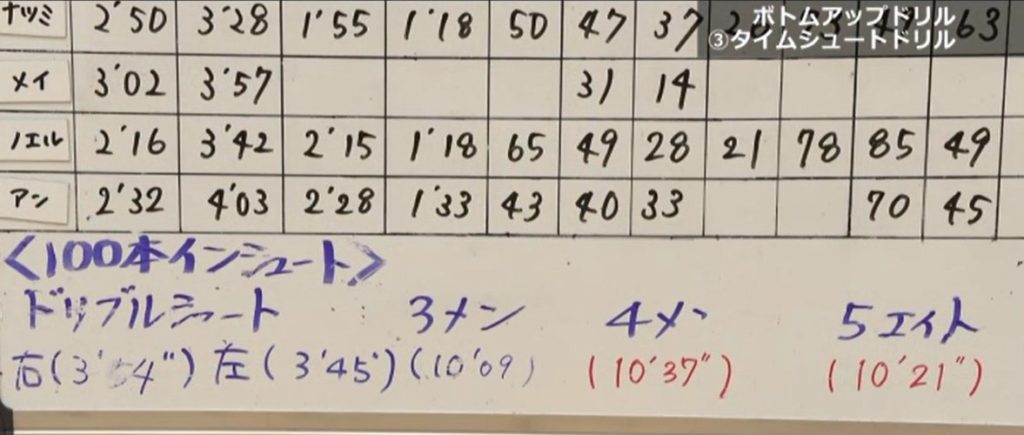 ボトムアップドリル
③タイムシュートドリル
ナツミ 2'50 3'28 1'55 1'18 50 47 37 63
メイ 3'02 3'57 31 14
ノエル 2'16 3'42 2'15 1'18 65 49 28 21 78 85 49
アン 2'32 4'03 2'28 1'33 43 40 33 70 45
<100本インシュート>
ドリブルシュート 3メン 4メン 5エイト
右(3'54") 左(3'45') (10'09) (10'37") (10'21")